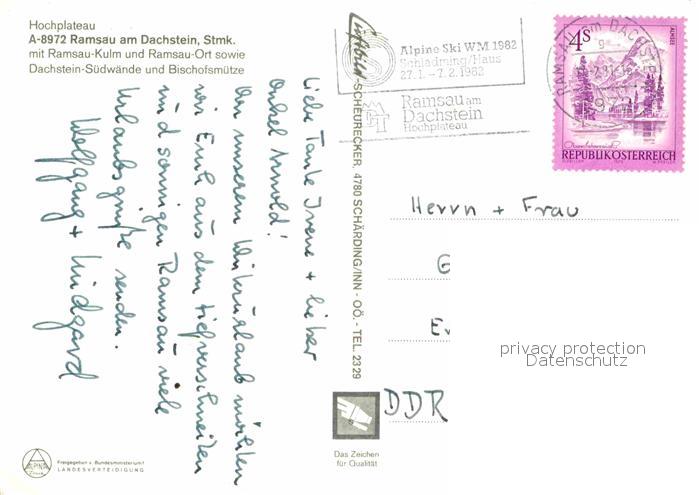 Hochplateau
A-8972 Ramsau am Dachstein, Stmk.
mit Ramsau-Kulm und Ramsau-Ort sowie
Dachstein-Südwände und Bischofsmütze
Liebe Tante Irene + lieber
Onkel Arnold!
Von unserem Winterurlaub möchten
wir Euch aus dem tiefverschneiten
und sonnigen Ramsau viele
Urlaubsgrüße senden.
Wolfgang + Luidgard
Freigegeben v. Bundesministerium f.
LANDESVERTEIDIGUNG
ALPINA
Luftbild-SCHEURECKER, 4780 SCHÄRDING/INN - OÖ. - TEL. 2329
Alpine Ski WM 1982
Schladming/Haus
27.1. - 7.2.1982
Ramsau am
Dachstein
Hochplateau
RAMSAU am DACHSTE
4S
ALMSEE
REPUBLIK ÖSTERREICH
Herrn + Frau
G
E
DDR
privacy protection
Datenschutz
Das Zeichen
für Qualität